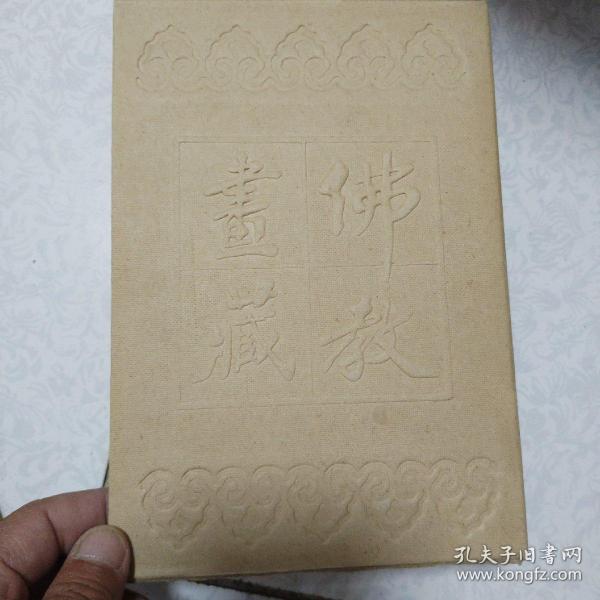 佛教
畫藏
孔夫子旧書网
www.kongfz.com